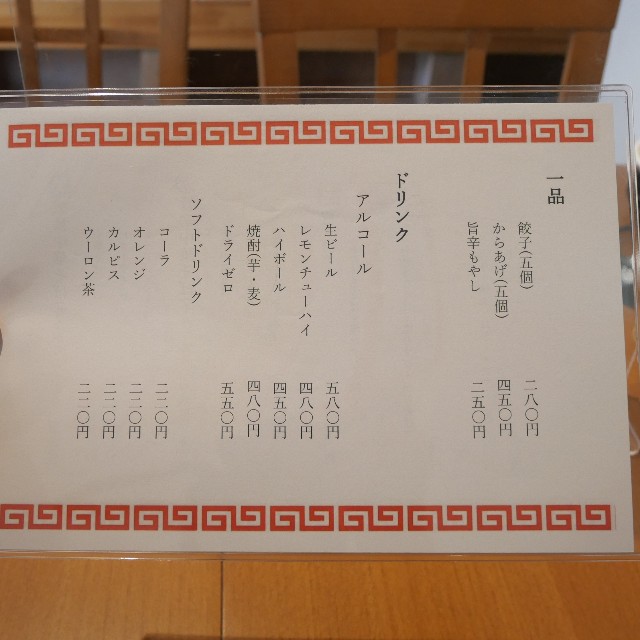 一品
餃子(五個) 二八〇円
からあげ(五個) 四五〇円
旨辛もやし 二五〇円
ドリンク
アルコール
生ビール 五八〇円
レモンチューハイ 四八〇円
ハイボール 四五〇円
焼酎(芋・麦) 四八〇円
ドライゼロ 五五〇円
ソフトドリンク
コーラ 二二〇円
オレンジ 二二〇円
カルピス 二二〇円
ウーロン茶 二二〇円